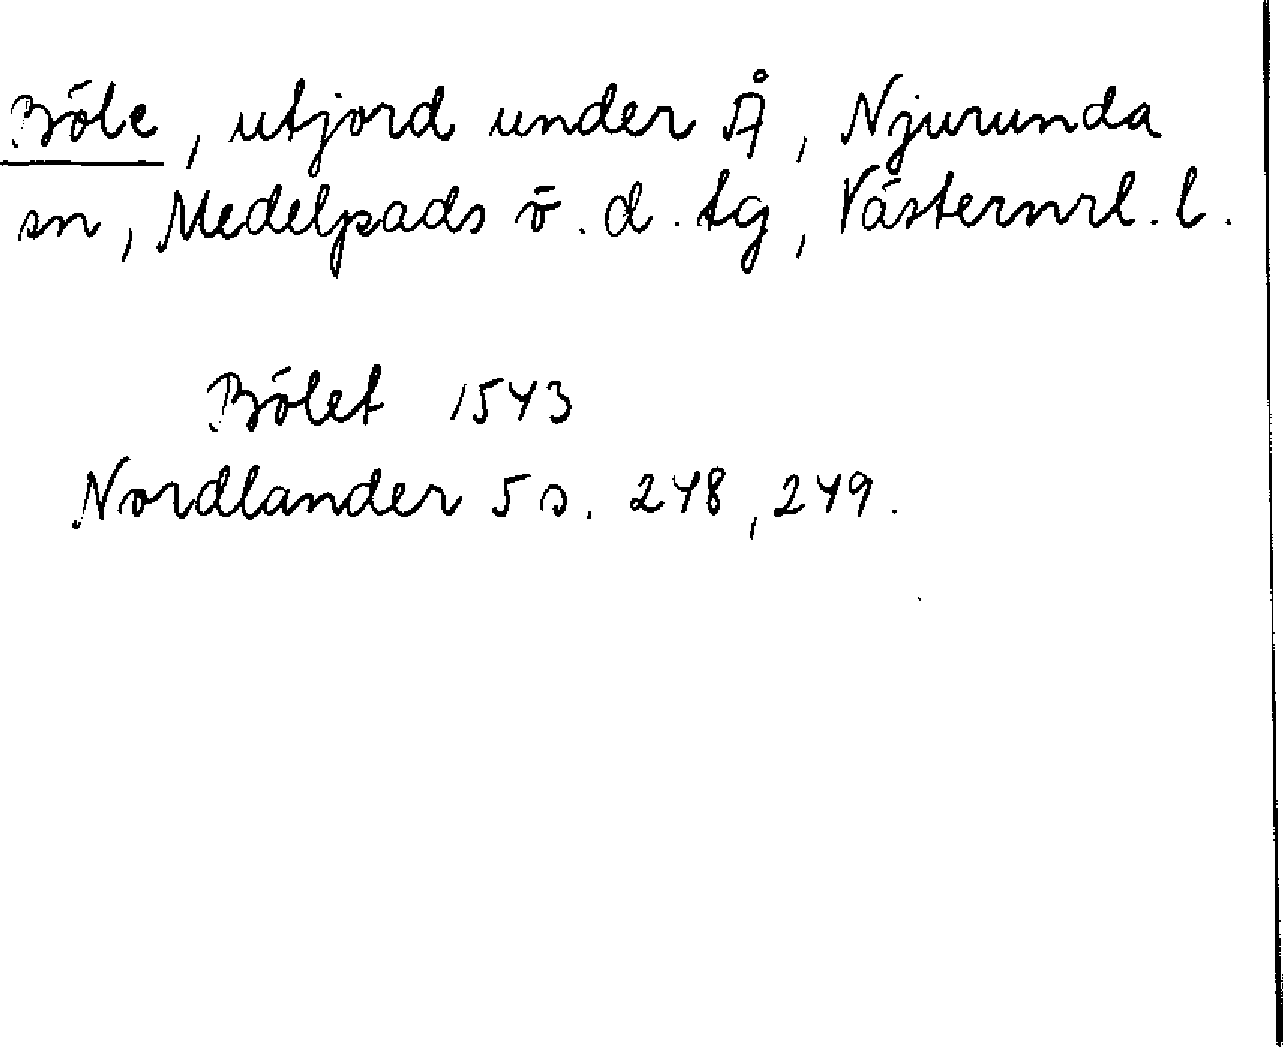 Böle, utjord under Å, Njurunda
sn, Medelpads ö. d. tg, Västernrl. l.
Bölet 1543
Nordlander 5 s. 248, 249.